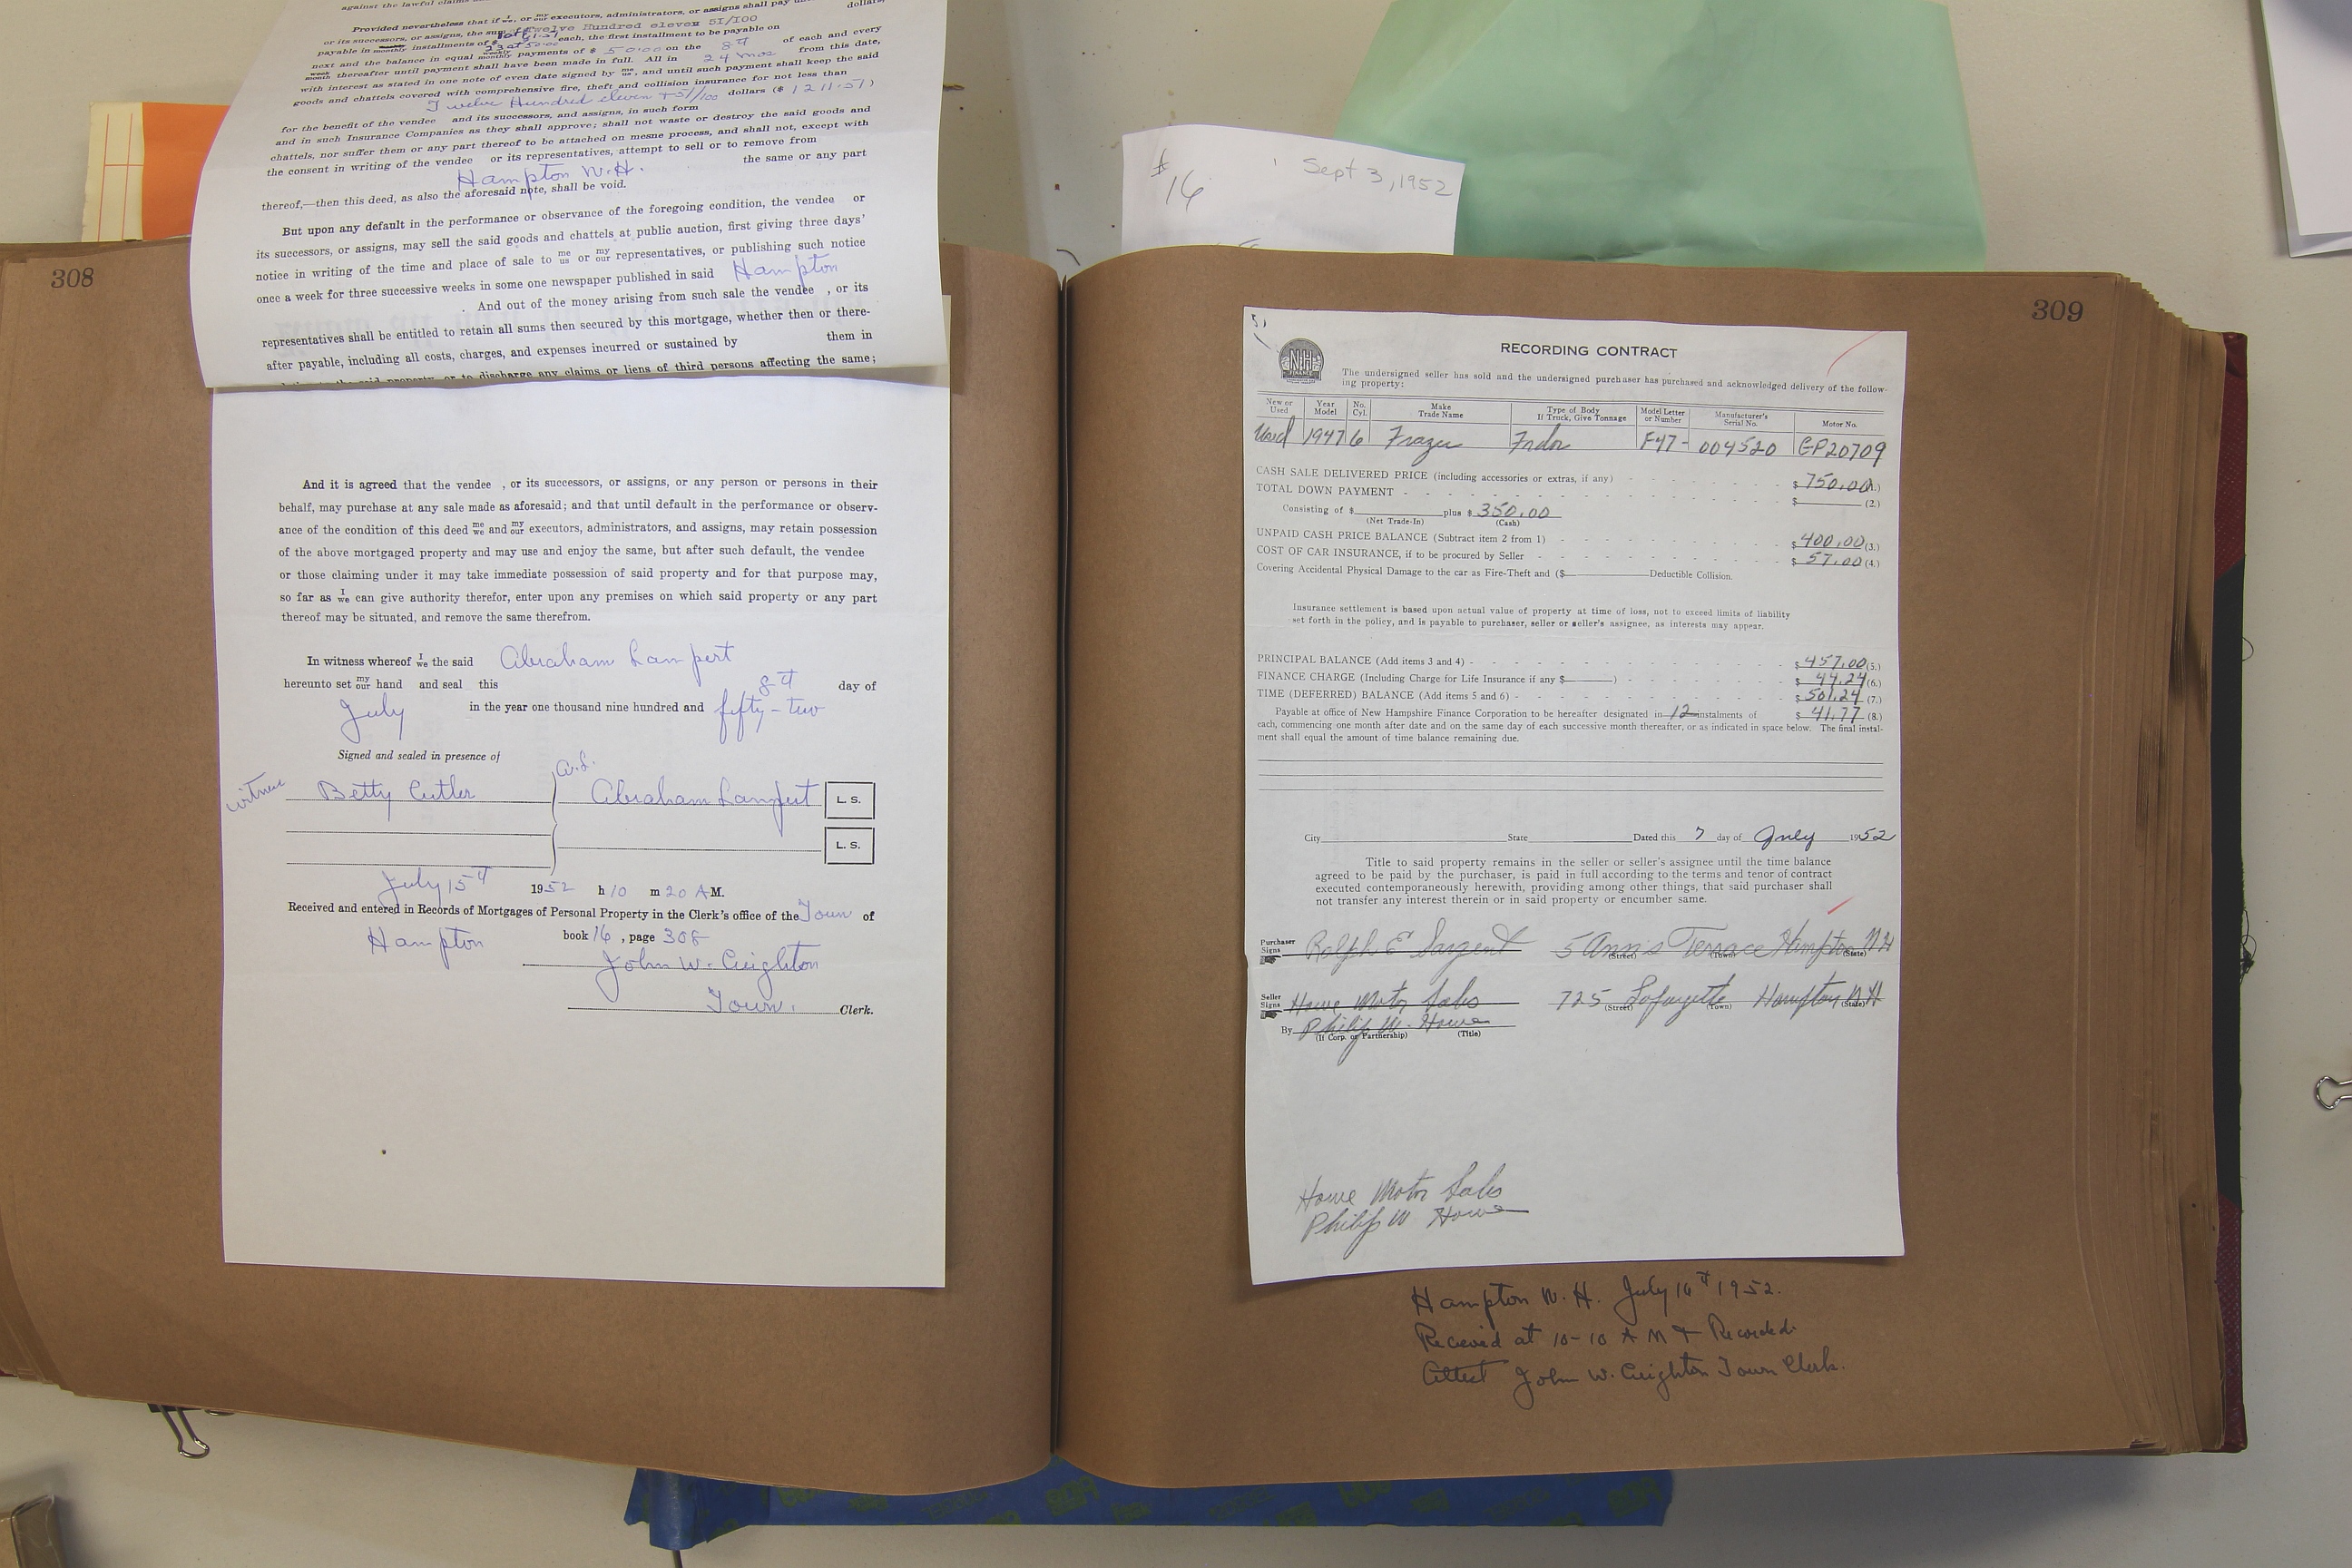 308
against the lawful claims
Provided nevertheless that if I we, or my our executors, administrators, or assigns shall pay
or its successors, or assigns, the sum of Twelve Hundred eleven 51/100 dollars,
payable in monthly installments of $ each, the first installment to be payable on
next and the balance in equal weekly monthly payments of $ 50.00 on the 8th of each and every
week month thereafter until payment shall have been made in full. All in 24 mos from this date,
with interest as stated in one note of even date signed by me us, and until such payment shall keep the said
goods and chattels covered with comprehensive fire, theft and collision insurance for not less than
Twelve Hundred eleven + 51/100 dollars ($ 1211.51)
for the benefit of the vendee and its successors, and assigns, in such form
and in such Insurance Companies as they shall approve; shall not waste or destroy the said goods and
chattels, nor suffer them or any part thereof to be attached on mesne process, and shall not, except with
the consent in writing of the vendee or its representatives, attempt to sell or to remove from
Hampton N.H. the same or any part
thereof,—then this deed, as also the aforesaid note, shall be void.
But upon any default in the performance or observance of the foregoing condition, the vendee or
its successors, or assigns, may sell the said goods and chattels at public auction, first giving three days'
notice in writing of the time and place of sale to me us or my our representatives, or publishing such notice
once a week for three successive weeks in some one newspaper published in said Hampton
. And out of the money arising from such sale the vendee , or its
representatives shall be entitled to retain all sums then secured by this mortgage, whether then or there-
after payable, including all costs, charges, and expenses incurred or sustained by them in
the said property, or to discharge any claims or liens of third persons affecting the same;
And it is agreed that the vendee , or its successors, or assigns, or any person or persons in their
behalf, may purchase at any sale made as aforesaid; and that until default in the performance or observ-
ance of the condition of this deed me we and my our executors, administrators, and assigns, may retain possession
of the above mortgaged property and may use and enjoy the same, but after such default, the vendee
or those claiming under it may take immediate possession of said property and for that purpose may,
so far as I we can give authority therefor, enter upon any premises on which said property or any part
thereof may be situated, and remove the same therefrom.
In witness whereof I we the said Abraham Lampert
hereunto set my our hand and seal this 8th day of
July in the year one thousand nine hundred and fifty-two
Signed and sealed in presence of
A.L.
witness Betty Cutler Abraham Lampert L. S.
L. S.
July 15th 1952 h 10 m 20 A M.
Received and entered in Records of Mortgages of Personal Property in the Clerk's office of the Town of
Hampton book 16 , page 308
John W. Creighton
Town. Clerk.
$ 16 Sept 3, 1952
309
RECORDING CONTRACT
N.H.
FINANCE
The undersigned seller has sold and the undersigned purchaser has purchased and acknowledged delivery of the follow-
ing property:
New or Used Year Model No. Cyl. Make Trade Name Type of Body If Truck, Give Tonnage Model Letter or Number Manufacturer's Serial No. Motor No.
Used 1947 6 Frazer Fndor F47- 004520 GP20709
CASH SALE DELIVERED PRICE (including accessories or extras, if any) $ 750.00 (1.)
TOTAL DOWN PAYMENT $ (2.)
Consisting of $ (Net Trade-In) plus $ 350.00 (Cash)
UNPAID CASH PRICE BALANCE (Subtract item 2 from 1) $ 400.00 (3.)
COST OF CAR INSURANCE, if to be procured by Seller $ 57.00 (4.)
Covering Accidental Physical Damage to the car as Fire-Theft and ($ Deductible Collision.
Insurance settlement is based upon actual value of property at time of loss, not to exceed limits of liability
set forth in the policy, and is payable to purchaser, seller or seller's assignee, as interests may appear.
PRINCIPAL BALANCE (Add items 3 and 4) $ 457.00 (5.)
FINANCE CHARGE (Including Charge for Life Insurance if any $ ) $ 44.24 (6.)
TIME (DEFERRED) BALANCE (Add items 5 and 6) $ 501.24 (7.)
Payable at office of New Hampshire Finance Corporation to be hereafter designated in 12 instalments of $ 41.77 (8.)
each, commencing one month after date and on the same day of each successive month thereafter, or as indicated in space below. The final instal-
ment shall equal the amount of time balance remaining due.
City State Dated this 7 day of July 1952
Title to said property remains in the seller or seller's assignee until the time balance
agreed to be paid by the purchaser, is paid in full according to the terms and tenor of contract
executed contemporaneously herewith, providing among other things, that said purchaser shall
not transfer any interest therein or in said property or encumber same.
Purchaser Signs Ralph E Sargent 5 Ann's Terrace Hampton NH
(Street) (Town) (State)
Seller Signs Howe Motor Sales 725 Lafayette Hampton NH
(Street) (Town) (State)
By Philip W. Howe
(If Corp. or Partnership) (Title)
Howe Motor Sales
Philip W Howe
Hampton N. H. July 16th 1952.
Recieved at 10-10 A M & Recorded
Attest John W. Creighton Town Clerk.